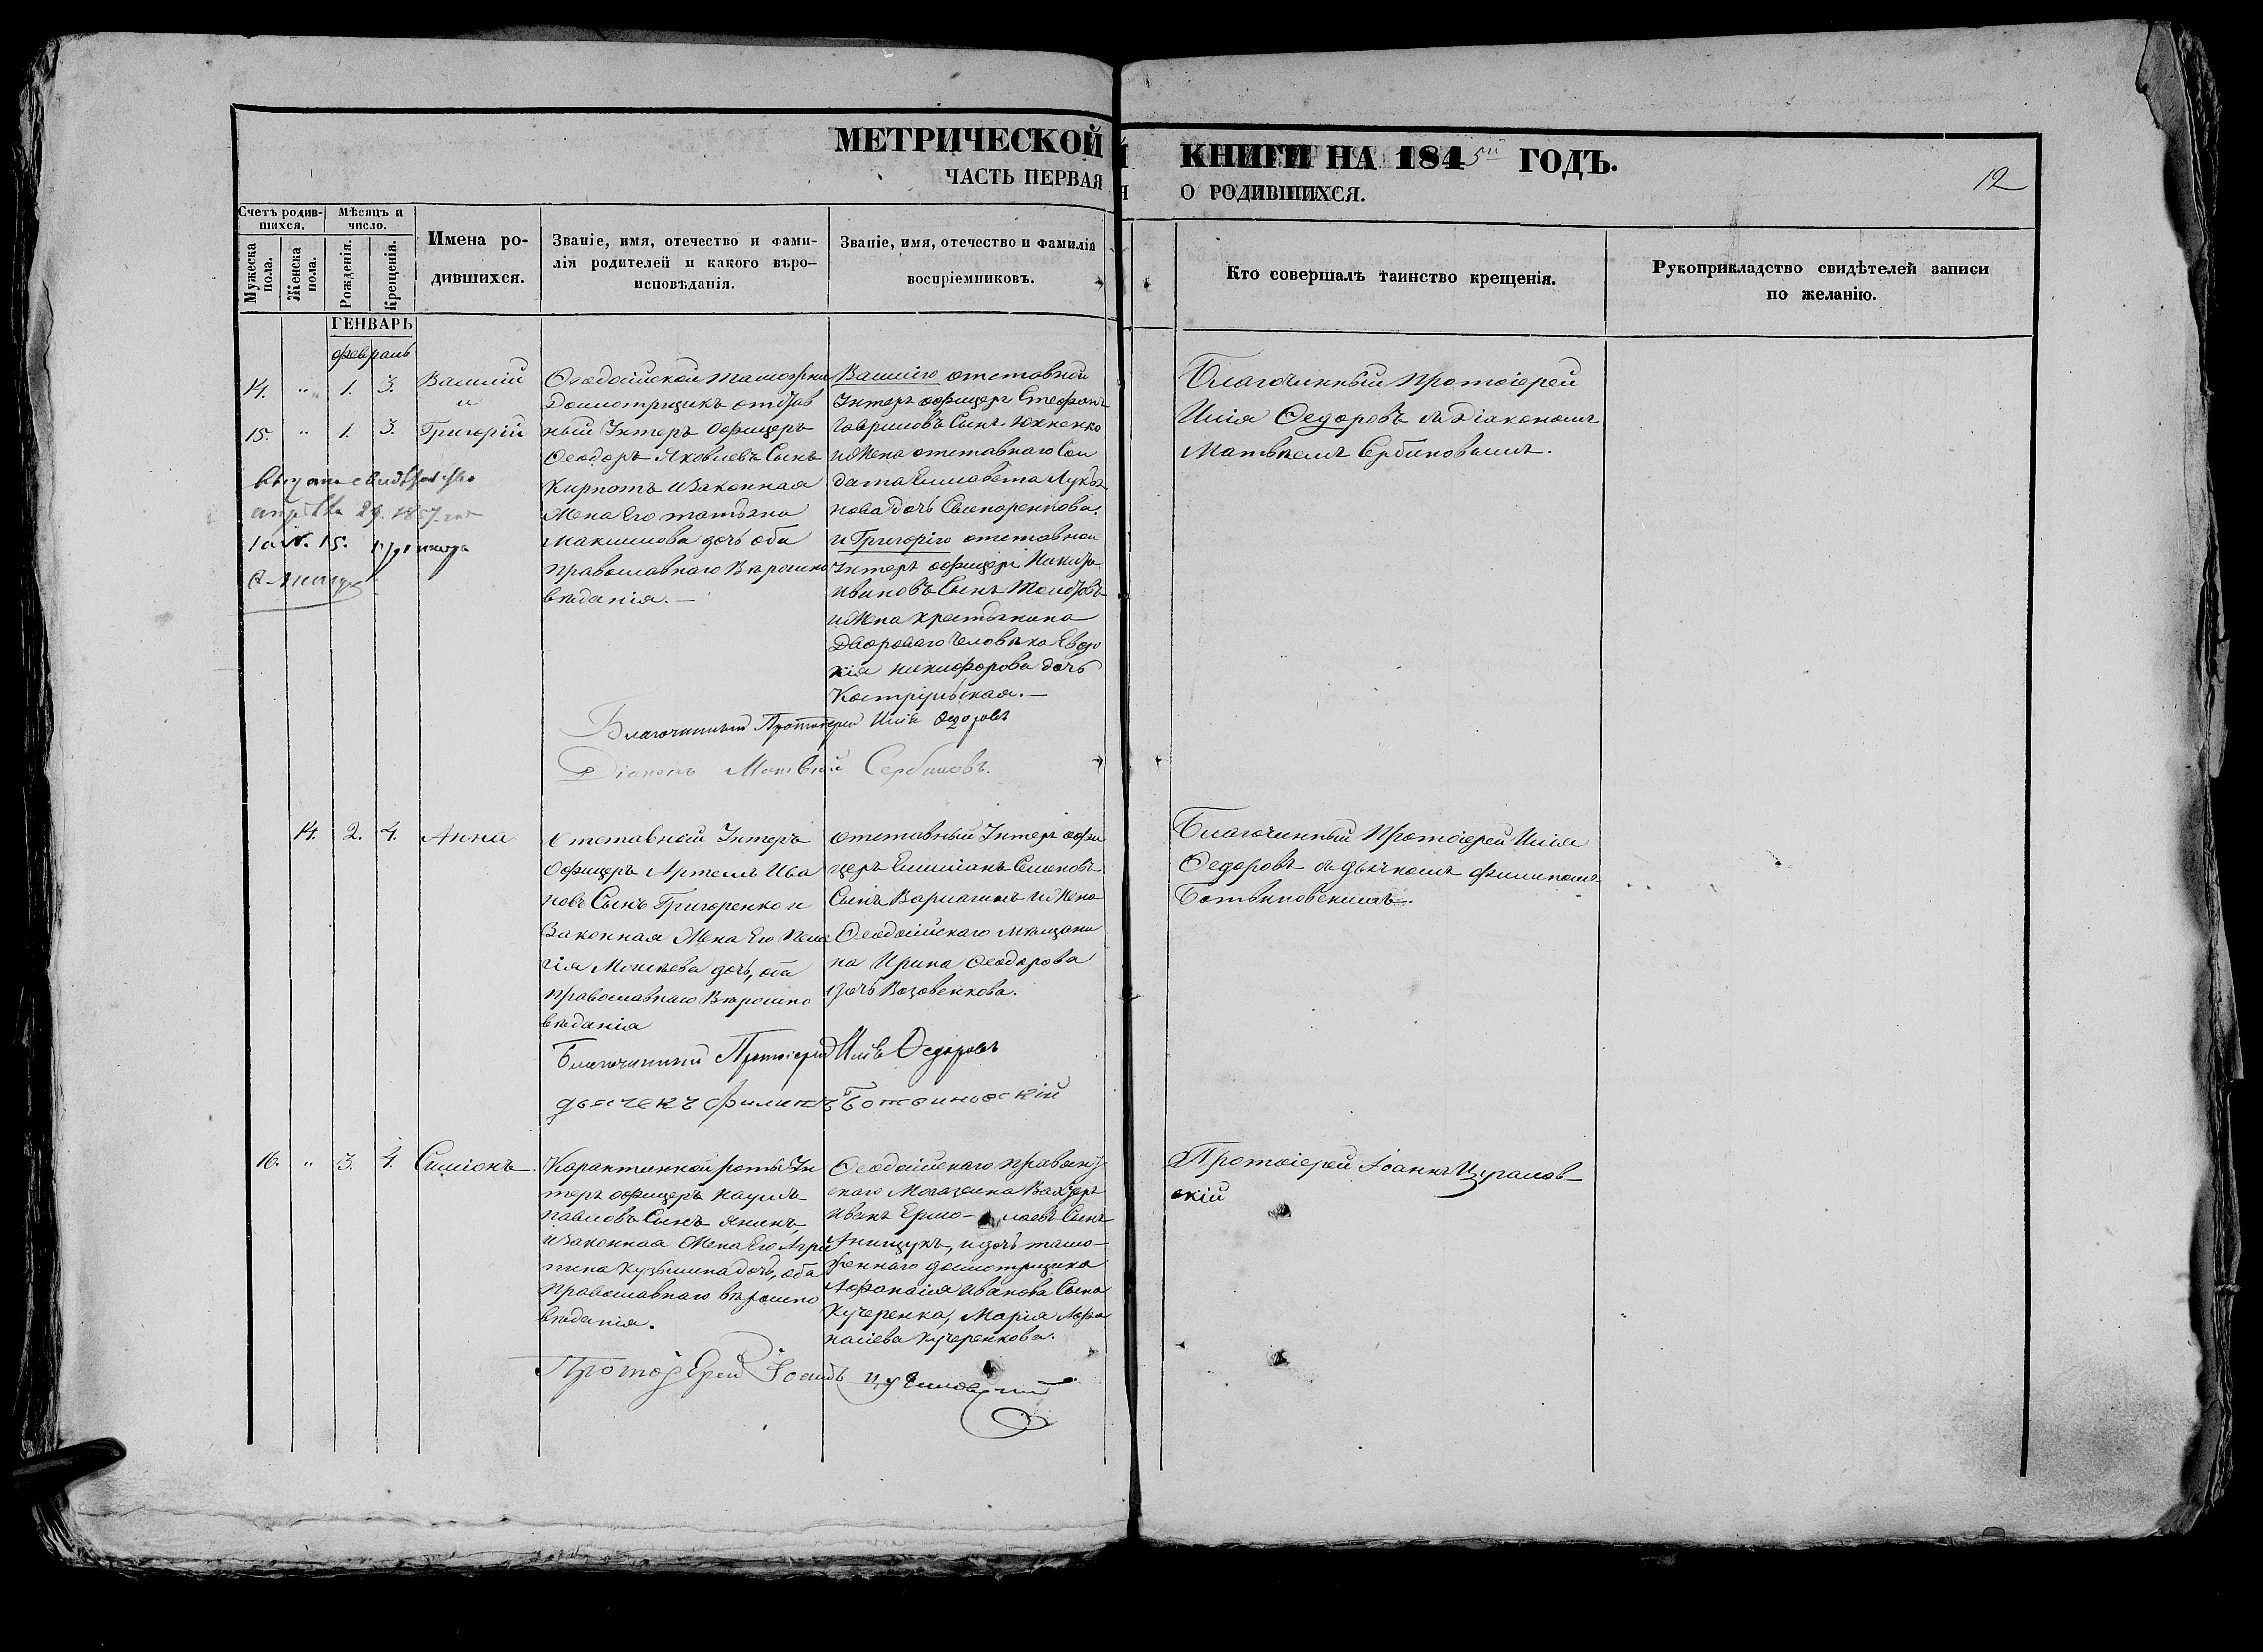 МЕТРИЧЕСКОЙ
ЧАСТЬ ПЕРВАЯ
КНИГИ НА 1845й ГОДЪ.
О РОДИВШИХСЯ.
12
Счетъ родив-
шихся.
Мѣсяцъ и
число.
Мужеска
пола.
Женска
пола.
Рожденія.
Крещенія.
Имена ро-
дившихся.
Званіе, имя, отечество и фами-
лія родителей и какого вѣро-
исповѣданія.
Званіе, имя, отечество и фамилія
воспріемниковъ.
Кто совершалъ таинство крещенія.
Рукоприкладство свидѣтелей записи
по желанію.
ГЕНВАРЬ
февраль
14. " 1. 3.
Василій
и
15. " 1. 3.
Григорій
29. 1857
№. 15.
Ѳеодосійской таможни
Досмотрщикъ отстав
ный Унтеръ Офицеръ
Ѳеодоръ Яковлевъ Сынъ
изаконная
Жена Его татьяна
Максимова дочь оба
православнаго Вѣроиспо
вѣданія.—
Василію отставной
Унтеръ офицеръ Стефанъ
Гавриловъ Сынъ Юхненко
иЖена отставнаго Сол
дата Елисавета Лукья
нова дочь Слюсоренкова.
и Григорію отставной
Унтеръ офицеръ Никита
Ивановъ Сынъ
иЖена крестьянина
Двороваго человѣка Евдо
кія никифорова дочь
Благочинный Протоіерей
Илія Ѳедоровъ съ Діакономъ
Матвѣемъ Сербиновымъ.
Благочинный Протоіерей Илія Ѳедоровъ
Діаконъ Матвѣй Сербиновъ.
14. 2. 4.
Анна
Отставный Унтеръ
Офицеръ Артемъ Ива
новъ Сынъ Григоренко и
Законная Жена Его Пела
гія Моисѣева дочь, оба
православнаго Вѣроиспо
вѣданія
отставный Унтеръ офи
церъ Емиліанъ Семеновъ
Сынъ Варлагинъ иЖена
Ѳеодосійскаго мѣщани
на Ирина Ѳеодорова
дочь Возовенкова.
Благочинный Протоіерей Илія
Ѳедоровъ съ дьячкомъ филипомъ
Ботвиновскимъ.
Благочинный Протоіерей Илія Ѳедоровъ
дьячекъ Филипъ Ботвиновскій
16. " 3. 4.
Симіонъ
Карантинной роты Ун
теръ офицеръ Наумъ
Павловъ Сынъ Янинъ,
изаконная Жена Его Агри
пина Кузьмина дочь, оба
Православнаго вѣроиспо
вѣданія.
Ѳеодосійскаго провіянт
скаго Магазеина Вахтеръ
Иванъ Ермо- лаевъ Сынъ
Анищукъ, и дочь тамо-
женнаго досмотрщика
Афанасія Иванова Сына
Кучеренка, Марія Афа
насіева Кучеренкова.
Протоіерей Іоаннъ
скій
Протоіерей Іоаннъ